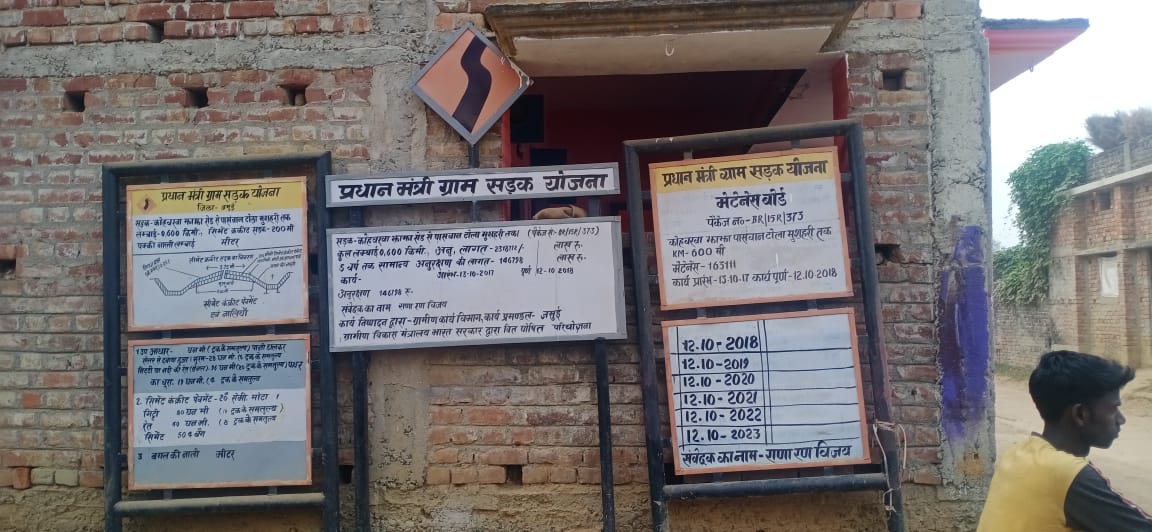 प्रधान मंत्री ग्राम सड़क योजना
जिला- जमुई
सड़क-कोहवरवा झाझा रोड से पासवान टोला मुशहरी तक
लम्बाई-0,600 किमी., सिमेंट कंक्रीट सड़क-200 मी
पक्की नाली लम्बाई मीटर
सीमेंट कंक्रीट पेवमेंट
एवं नालियाँ
2. सिमेंट कंक्रीट पेवमेंट-20 सेमी. मोटा
मिट्टी 80 घन मी (ट्रक के समतुल्य)
रेत 40 घन मी. (ट्रक के समतुल्य)
सिमेंट 504 बैग
3 बगल की नाली मीटर
प्रधान मंत्री ग्राम सड़क योजना
सड़क-कोहवरवा झाझा रोड से पासवान टोला मुशहरी तक (पैकेज सं-BR/15R/373)
कुल लम्बाई 0,600 किमी., अनु. लागत-2318111/- लाख रु.
5 वर्ष तक सामान्य अनुरक्षण की लागत-146798 लाख रु.
कार्य- आरंभ-13-10-2017 पूर्ण 12-10-2018
अनुरक्षण 146798 रु-
संवेदक का नाम राणा रण विजय
कार्य निष्पादन द्वारा-ग्रामीण कार्य विभाग, कार्य प्रमण्डल- जमुई
ग्रामीण विकास मंत्रालय भारत सरकार द्वारा वित्त पोषित परियोजना
प्रधान मंत्री ग्राम सड़क योजना
मेंटेनेंस बोर्ड
पैकेज नं०-BR/15R/373
कोहवरवा झाझा पासवान टोला मुशहरी तक
KM-600 मी
मेंटेनेंस-163111
कार्य प्रारंभ-13-10-17 कार्य पूर्ण-12.10-2018
12.10-2018
12.10-2019
12.10-2020
12.10-2021
12.10-2022
12.10-2023
संवेदक का नाम-राणा रण विजय